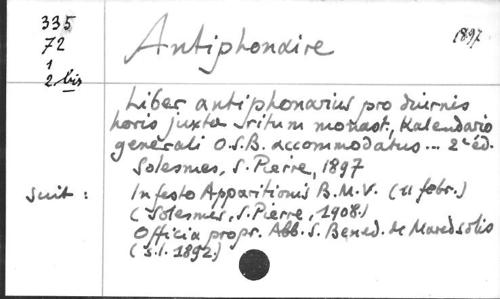 335
72
1
2 bis
Antiphonaire
1897
Liber antiphonarius pro diurnis
horis juxta ritum monast., Kalendario
generali O.S.B. accommodatus... 2e éd.
Solesmes, S. Pierre, 1897
Suit : In festo Apparitionis B.M.V. (11 febr.)
(Solesmes, S. Pierre, 1908.)
Officia propr. Abb. S. Bened. de Maredsolis
(s.l. 1892.)